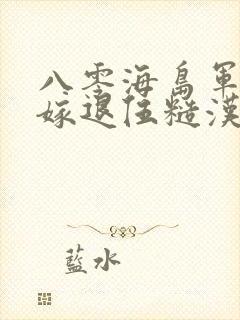 八零海島軍
嫁退伍糙漢
藍水